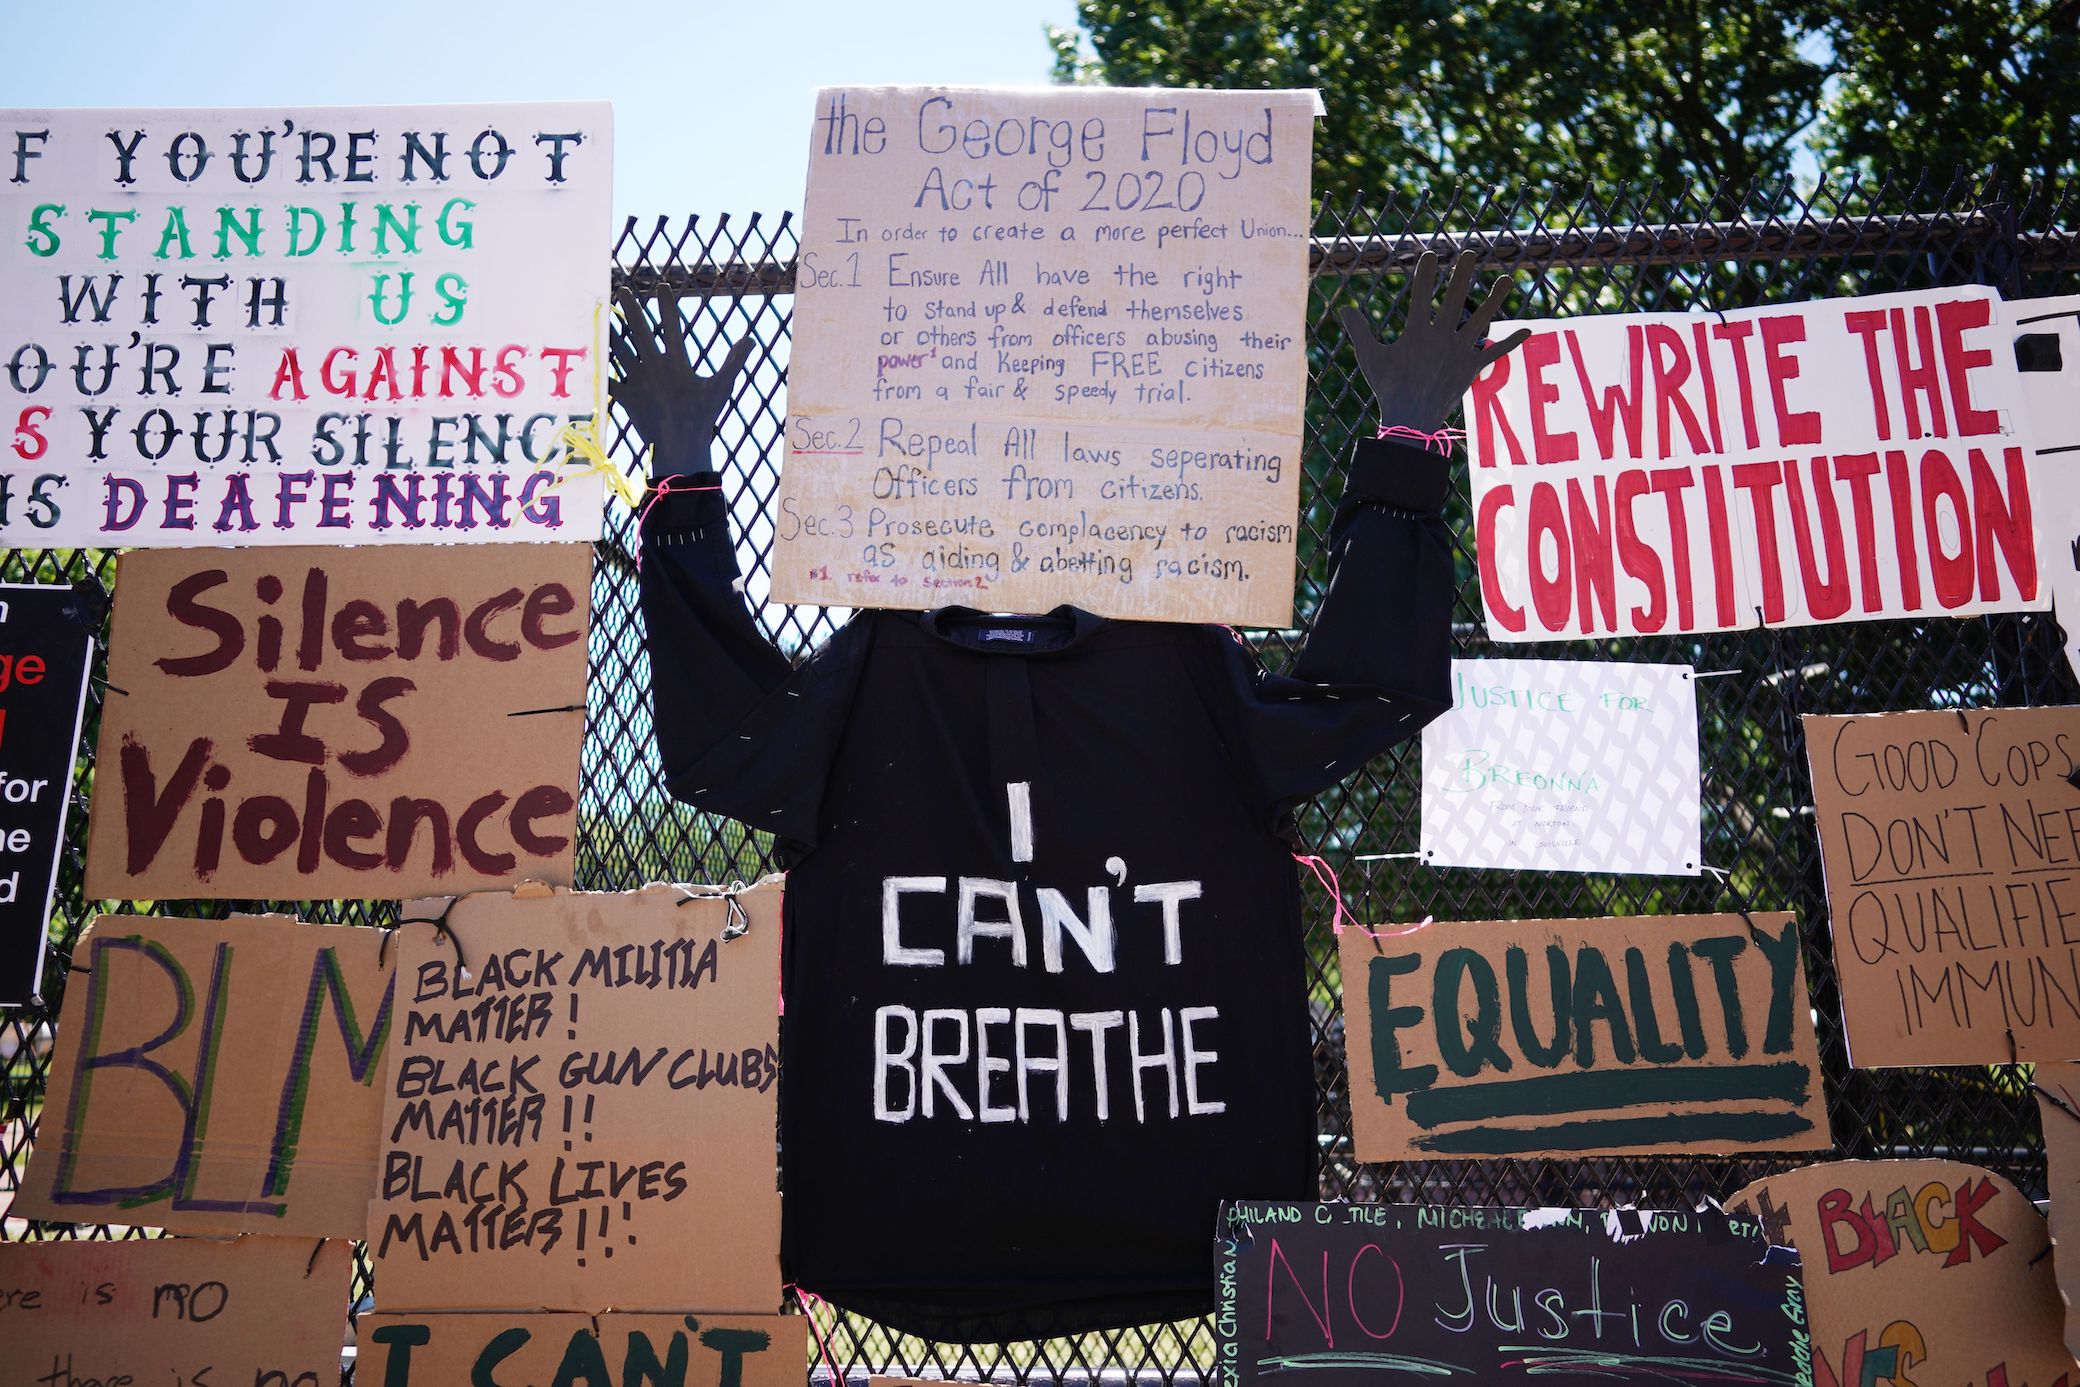 F YOU'RE NOT
STANDING
WITH US
OU'RE AGAINST
S YOUR SILENCE
IS DEAFENING
the George Floyd
Act of 2020
In order to create a more perfect Union...
Sec. 1 Ensure All have the right
to stand up & defend themselves
or others from officers abusing their
power¹ and keeping FREE citizens
from a fair & speedy trial.
Sec. 2 Repeal All laws seperating
Officers from citizens.
Sec. 3 Prosecute complacency to racism
as aiding & abetting racism.
#1 refer to Section 2
REWRITE THE
CONSTITUTION
Silence
IS
Violence
ge
for
ne
d
I
CAN'T
BREATHE
JUSTICE FOR
BREONNA
FROM YOUR FRIEND
AT NORTON
IN LOUISVILLE
GOOD COPS
DON'T NEE
QUALIFIE
IMMUN
BLM
BLACK MILITIA
MATTER!
BLACK GUN CLUBS
MATTER!!
BLACK LIVES
MATTER!!!
EQUALITY
PHILAND C TILE, MICHEALE
NO Justice
exia Christian
eddie Gray
BLACK
ere is no
there is no
I CAN'T